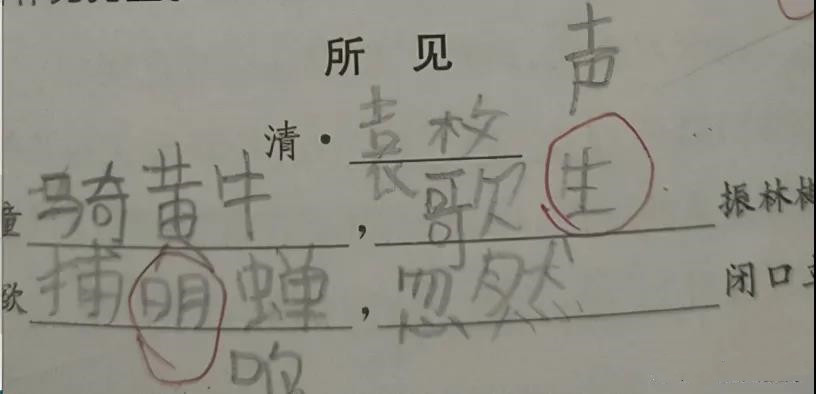 所见
声
清·袁枚
童骑黄牛，歌生振林樾
欲捕明蝉，忽然闭口立
鸣